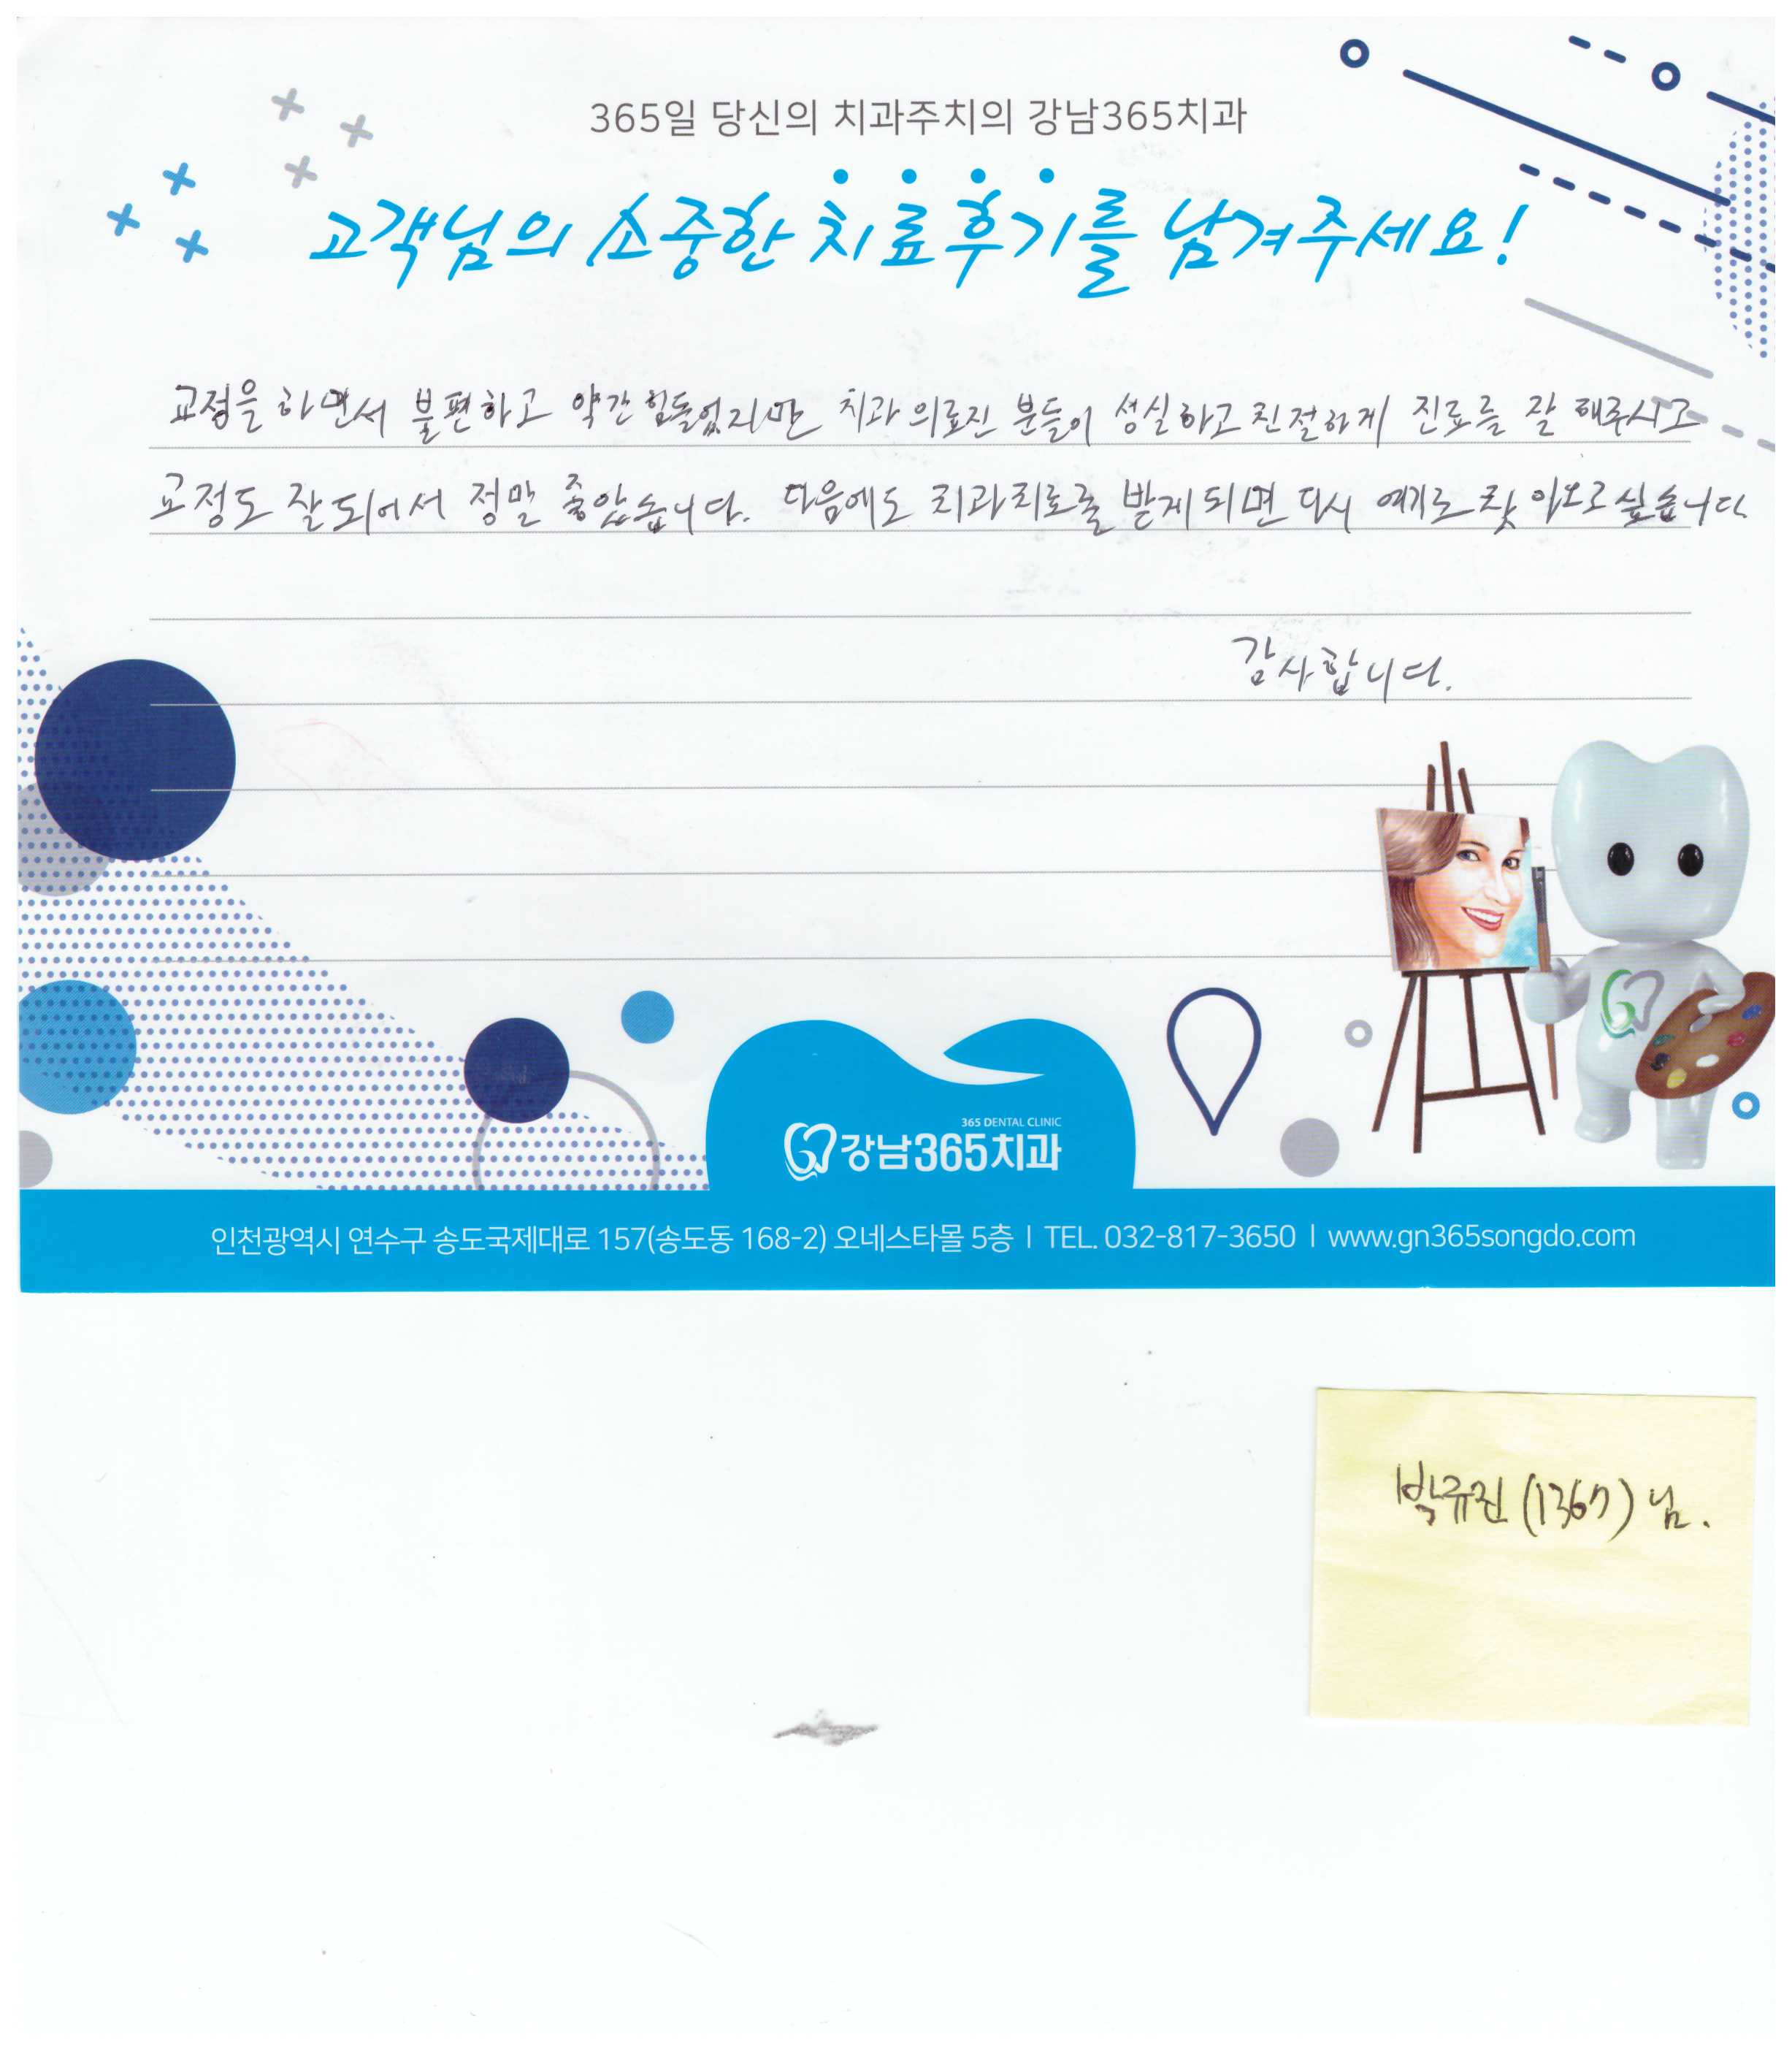 365일 당신의 치과주치의 강남365치과
고객님의 소중한 치료후기를 남겨주세요!
교정을 하면서 불편하고 약간 힘들었지만 치과 의료진 분들이 성실하고 친절하게 진료를 잘 해주시고
교정도 잘 되어서 정말 좋았습니다. 다음에도 치과치료를 받게 되면 다시 여기로 찾아오고 싶습니다
감사합니다.
365 DENTAL CLINIC
강남365치과
인천광역시 연수구 송도국제대로 157(송도동 168-2) 오네스타몰 5층 | TEL. 032-817-3650 | www.gn365songdo.com
박규진 (1367) 님.